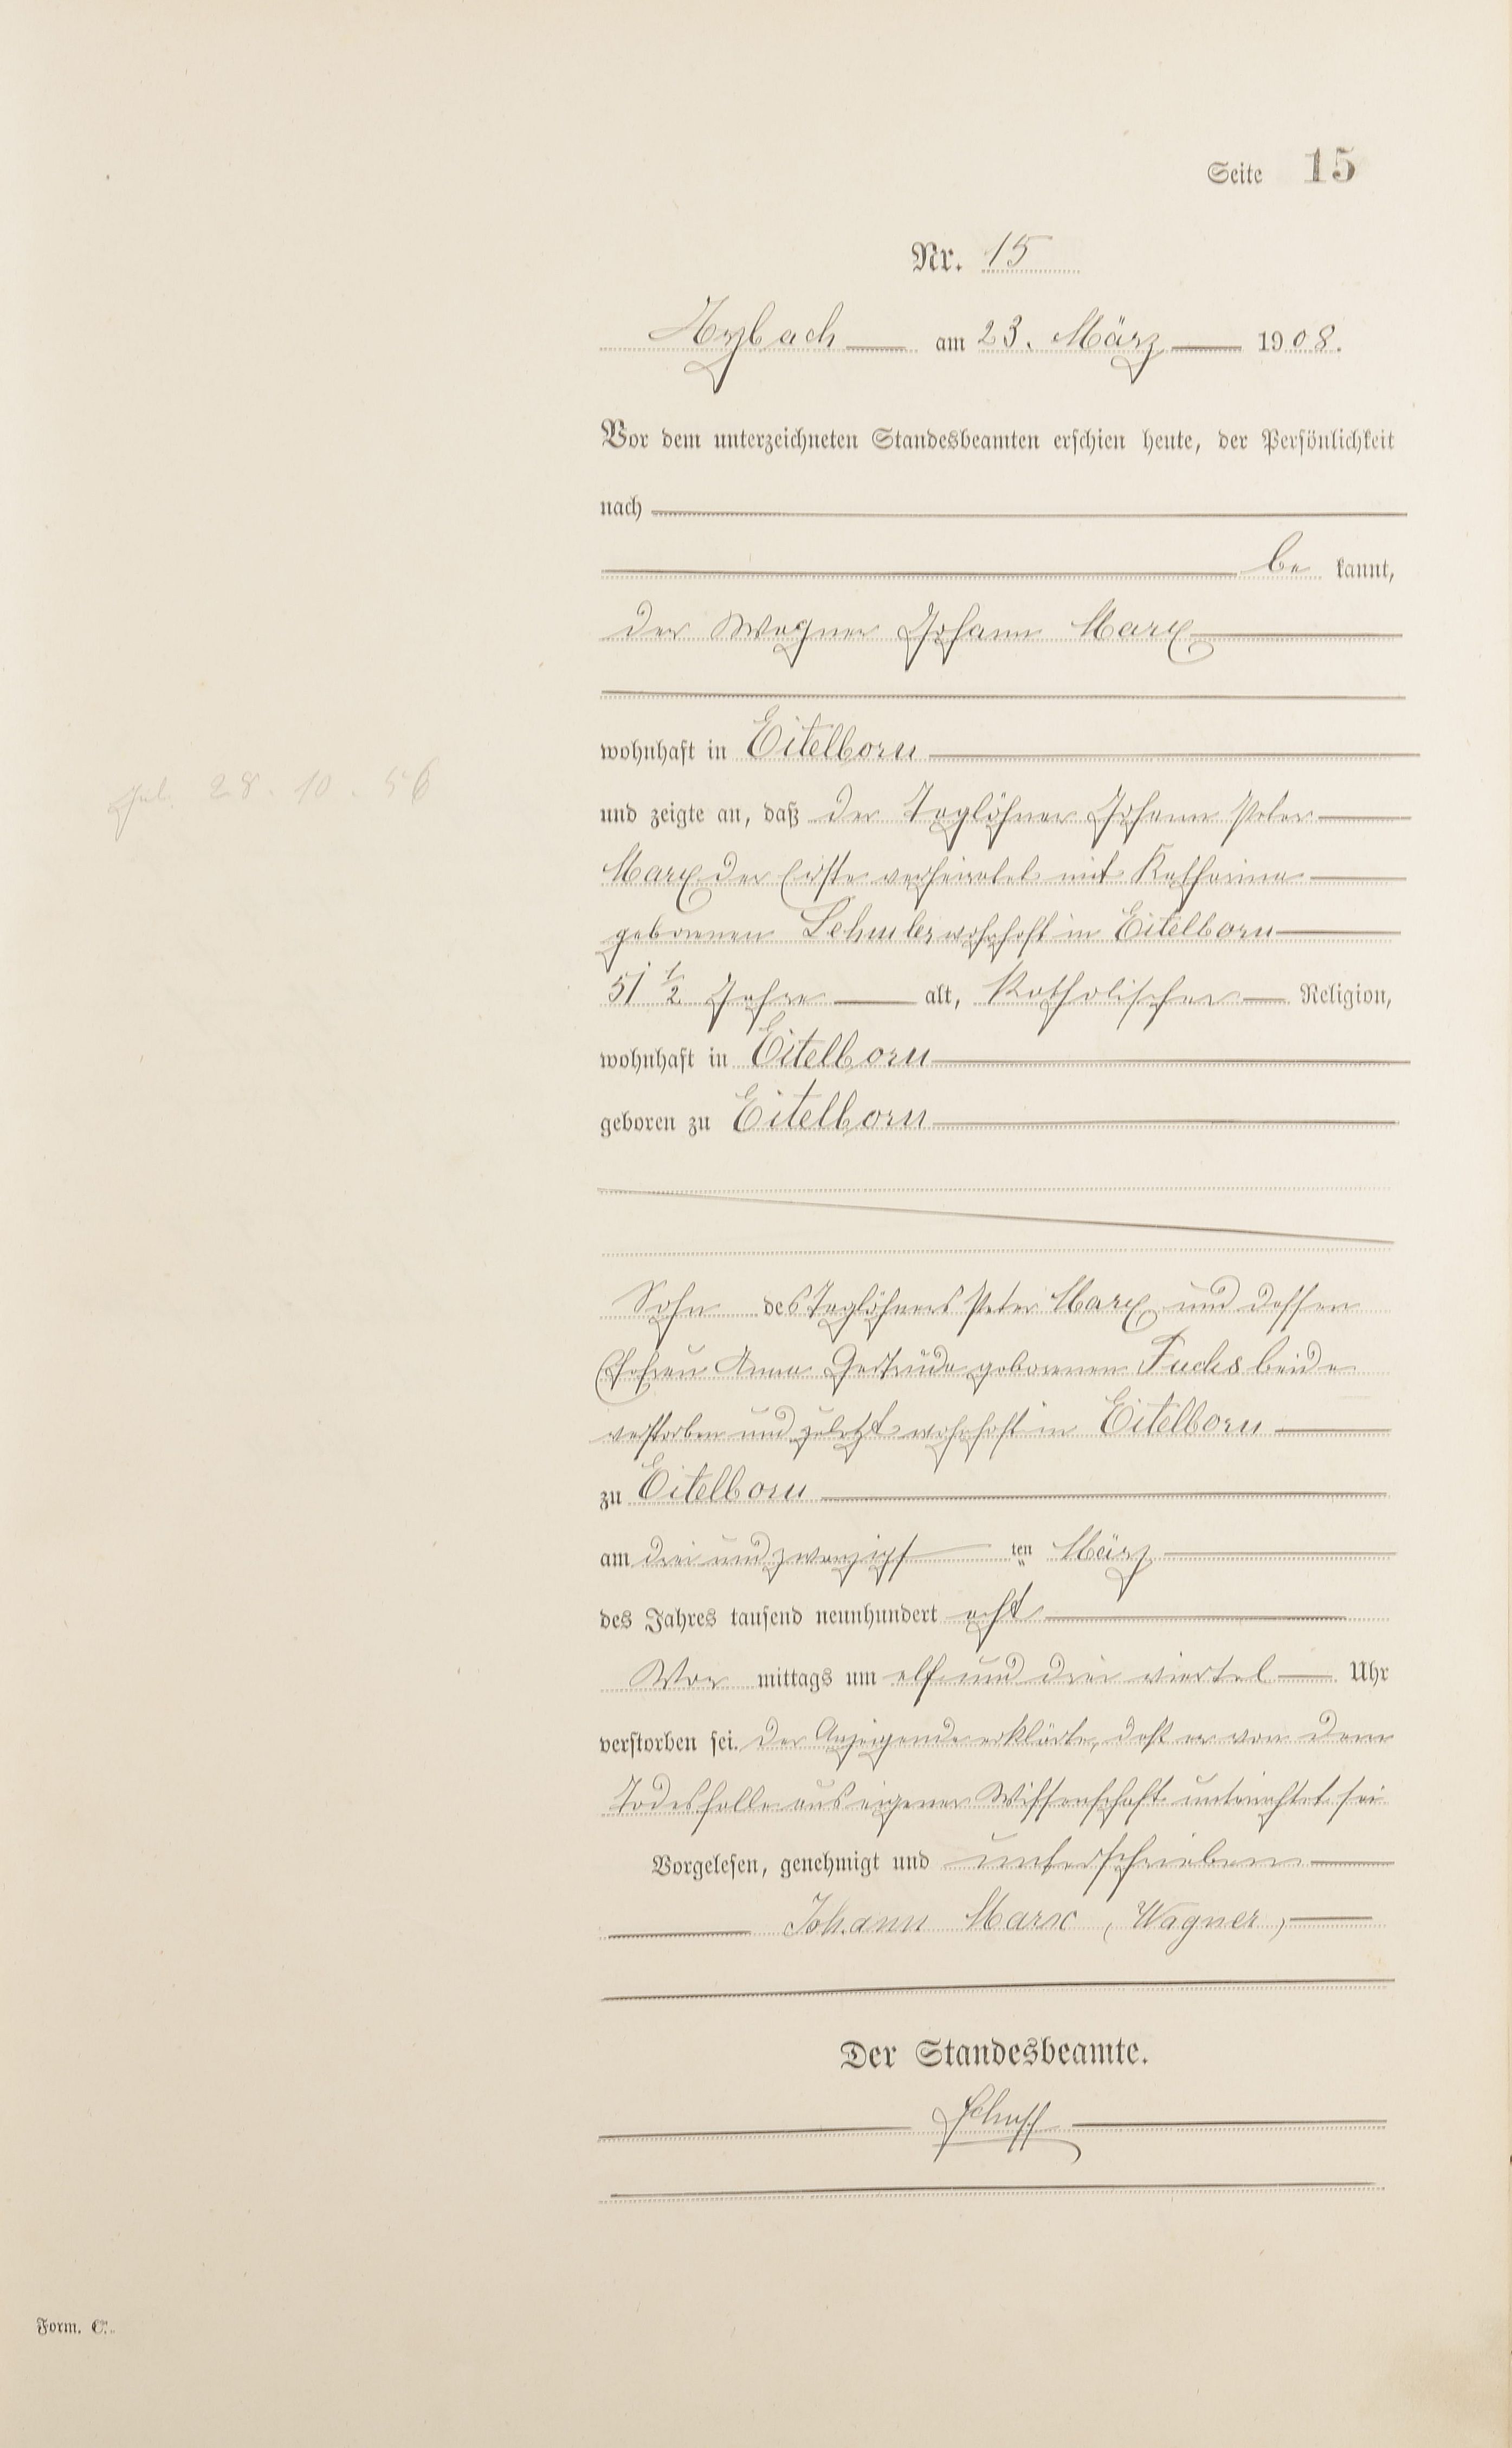 Seite 15
Nr. 15
Arzbach am 23. März 1908.
Vor dem unterzeichneten Standesbeamten erschien heute, der Persönlichkeit
nach
be kannt,
der Wagner Johann Marx
wohnhaft in Eitelborn
geb. 28. 10. 56
und zeigte an, daß der Taglöhner Johann Peter
Marx der Erste verheiratet mit Katharina
geborenen wohnhaft in Eitelborn
51 1/2 Jahre alt, Katholischer Religion,
wohnhaft in Eitelborn
geboren zu Eitelborn
Sohn des Taglöhners Peter Marx und dessen
Ehefrau Anna Gertrude geborenen Fuchs beide
verstorben und zuletzt wohnhaft in Eitelborn
zu Eitelborn
am drei und zwanzigsten März
des Jahres tausend neunhundert acht
Vor mittags um elf und drei viertel Uhr
verstorben sei. Der Anzeigende erklärte, daß er von dem
Todesfalle aus eigener Wissenschaft unterrichtet sei
Vorgelesen, genehmigt und unterschrieben
Johann Marx, Wagner,
Der Standesbeamte.
Form. C.